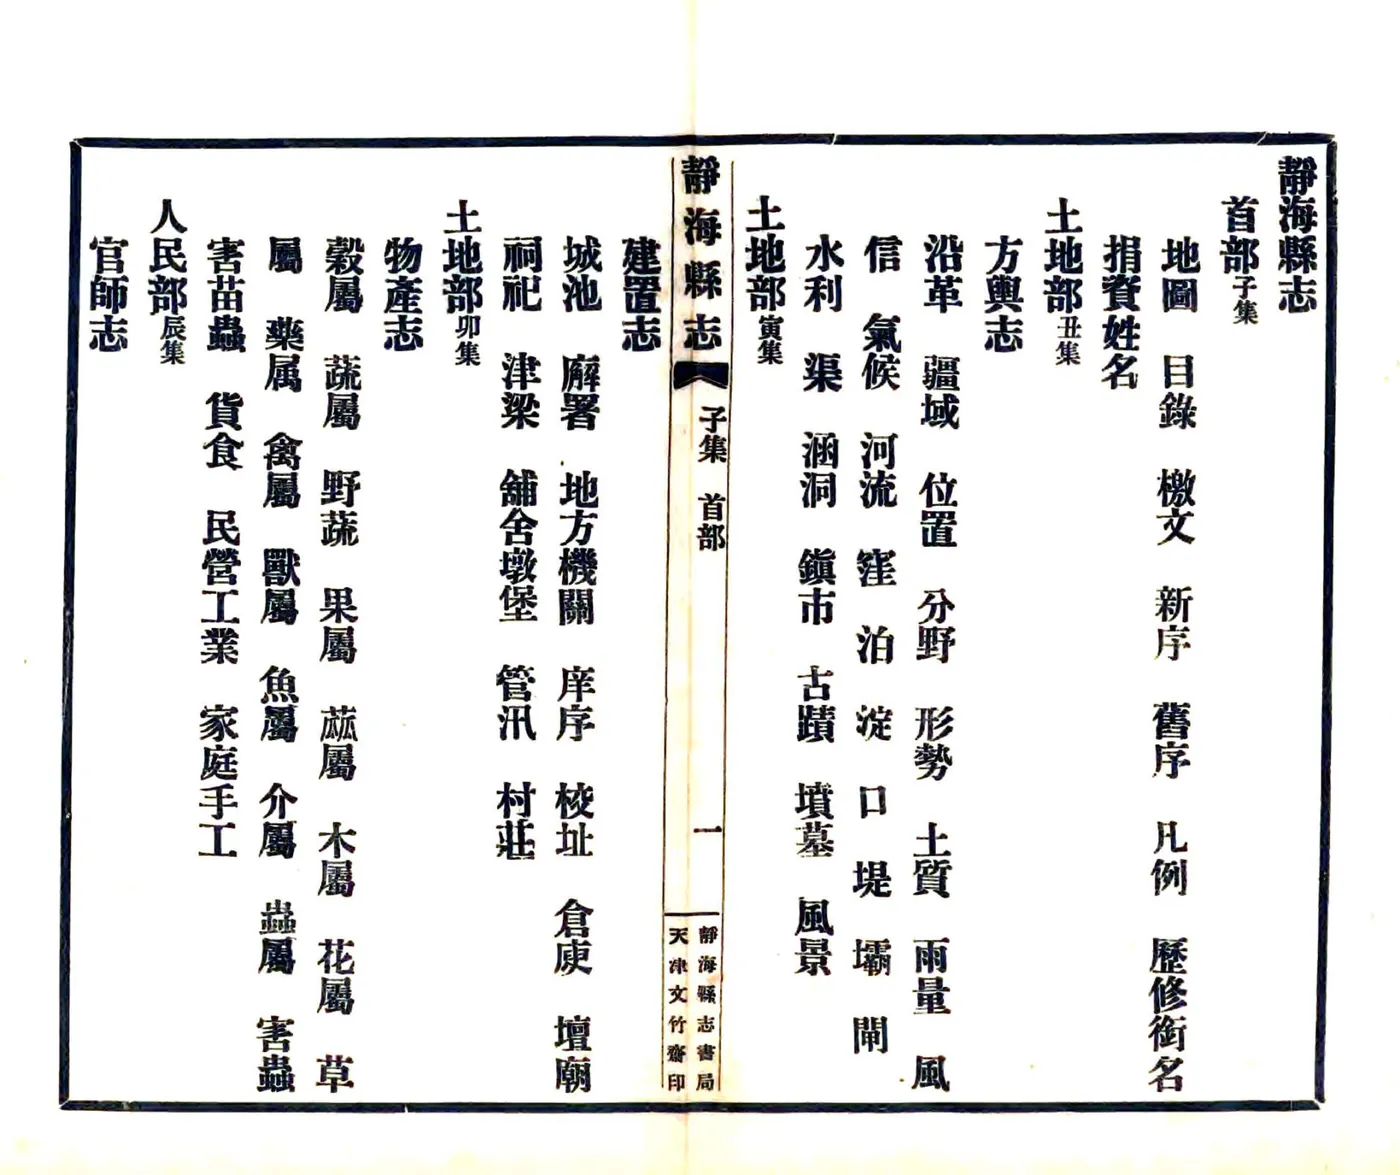 靜海縣志
首部子集
地圖 目錄 檄文 新序 舊序 凡例 歷修銜名
捐資姓名
土地部丑集
方輿志
沿革 疆域 位置 分野 形勢 土質 雨量 風
信 氣候 河流 窪 泊 淀 口 堤 壩 閘
水利 渠 涵洞 鎮市 古蹟 墳墓 風景
土地部寅集
靜海縣志 子集 首部 一
靜海縣志書局
天津文竹齋印
建置志
城池 廨署 地方機關 庠序 校址 倉庾 壇廟
祠祀 津梁 舖舍墩堡 管汛 村莊
土地部卯集
物產志
穀屬 蔬屬 野蔬 果屬 蓏屬 木屬 花屬 草
屬 藥属 禽屬 獸屬 魚屬 介屬 蟲屬 害蟲
害苗蟲 貨食 民營工業 家庭手工
人民部辰集
官師志